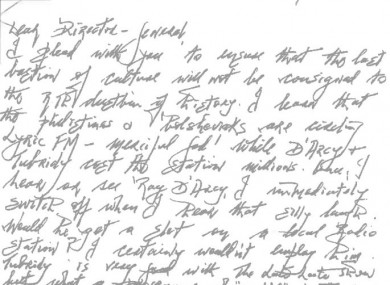 Dear Director-General
I plead with you to ensure that the last
bastion of culture will not be consigned to
the RTE dustbin of history. I hear that
the philistines & Bolsheviks are circling
Lyric FM - merciful God! while D'Arcy &
Tubridy cost the station millions. Once I
hear or see Ray D'Arcy I immediately
switch off when I hear that silly laugh.
Would he get a slot on a local Radio
Station? I certainly wouldn't employ him.
Tubridy is very good with the late late show
but what a